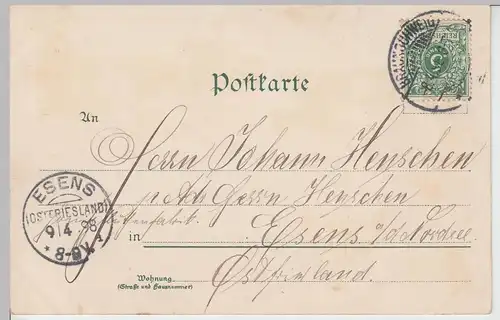 BRAUNSCHWEIG
REICHSPOST
5
Postkarte
An
Herrn Johann Henschen
p. Adr. Herrn Henschen
in Esens a/d Nordsee
Ostfriesland
Wohnung
(Straße und Hausnummer)
ESENS
(OSTFRIESLAND)
9/4 98
* 8-9V *